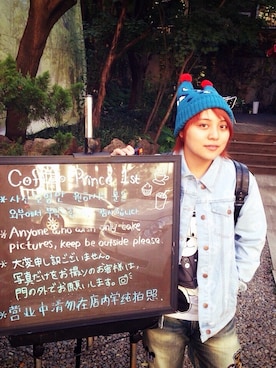 Coffee Prince 1st
Anyone who wish only take
pictures, keep be outside please.
* 大変申し訳ございません。
写真だけをお撮りのお客様は、
門の外でお願いします。
* 营业中请勿在店内竿纯拍照.